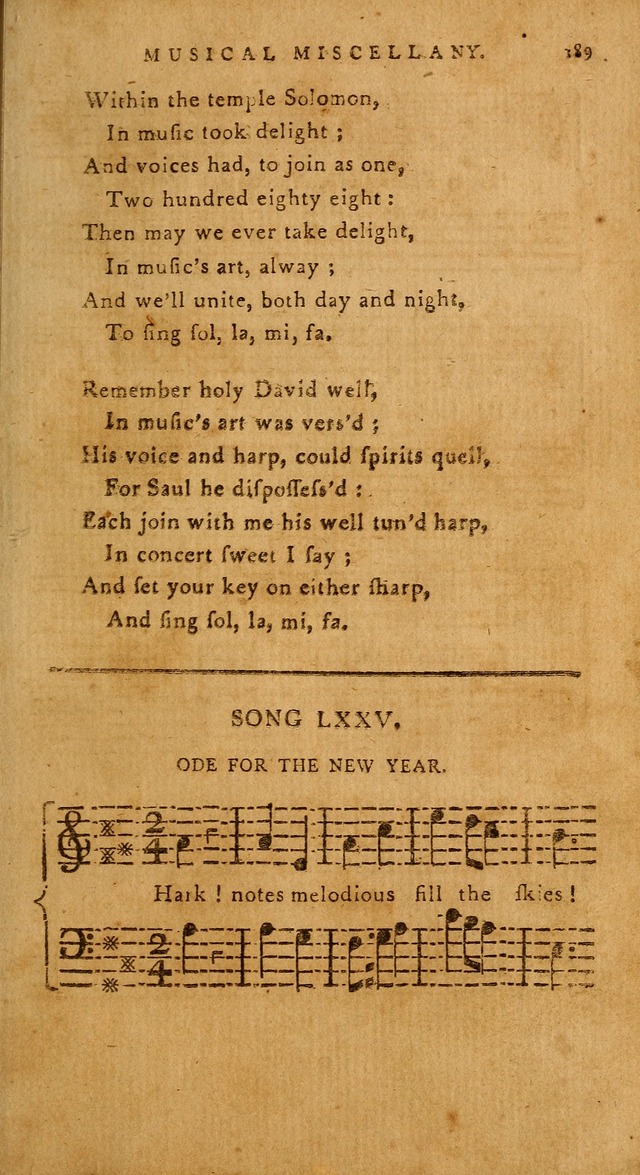 MUSICAL MISCELLANY. 189
Within the temple Solomon,
In muſic took delight ;
And voices had, to join as one,
Two hundred eighty eight :
Then may we ever take delight,
In muſic's art, alway ;
And we'll unite, both day and night,
To ſing ſol, la, mi, fa.
Remember holy David well,
In muſic's art was vers'd ;
His voice and harp, could ſpirits quell,
For Saul he diſpoſſeſs'd :
Each join with me his well tun'd harp,
In concert ſweet I ſay ;
And ſet your key on either ſharp,
And ſing ſol, la, mi, fa.
SONG LXXV.
ODE FOR THE NEW YEAR.
2
4
Hark ! notes melodious fill the ſkies !
2
4